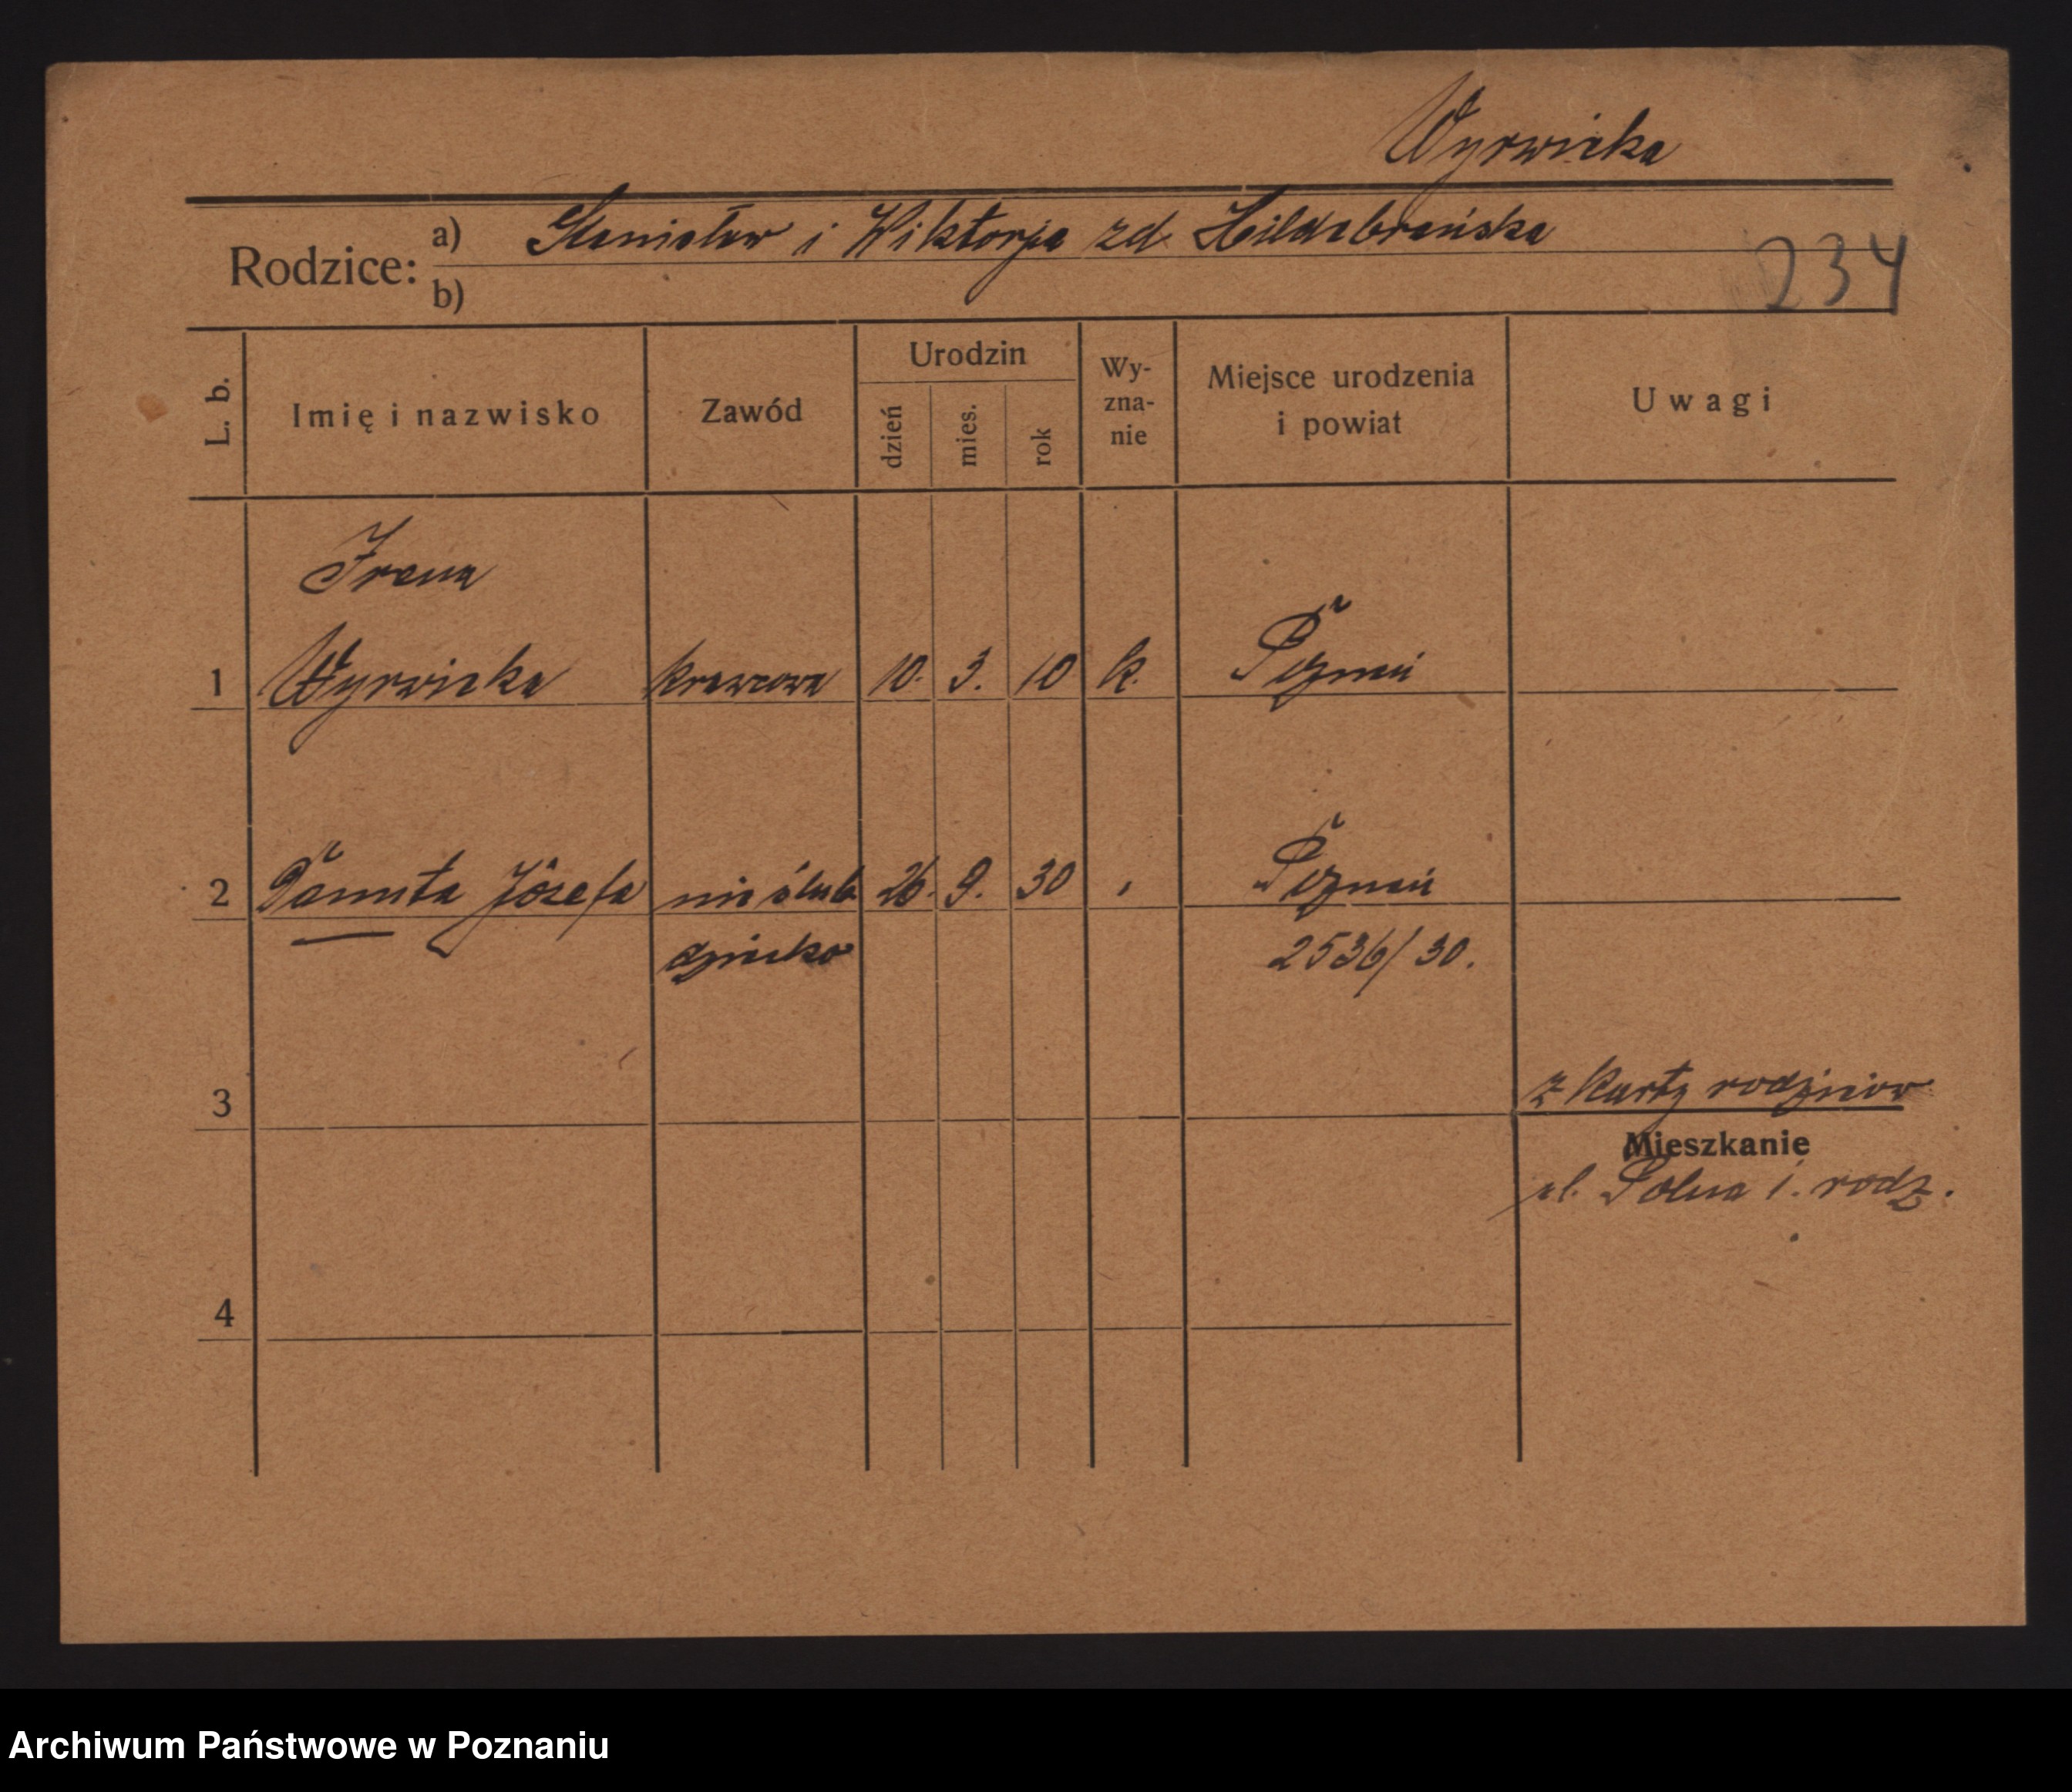 Wyrwicka
Rodzice: a) Stanisław i Wiktorja zd Hildebrańska
b)
234
L. b. Imię i nazwisko Zawód Urodzin dzień mies. rok Wy-zna-nie Miejsce urodzenia i powiat Uwagi
Irena
1 Wyrwicka krawcowa 10. 3. 10 k. Poznań
2 Danuta Józefa nieślub. 26. 9. 30 " Poznań
dziecko 2536/30.
3 z karty rodziców
Mieszkanie
ul. Polna i. rodz.
4
Archiwum Państwowe w Poznaniu